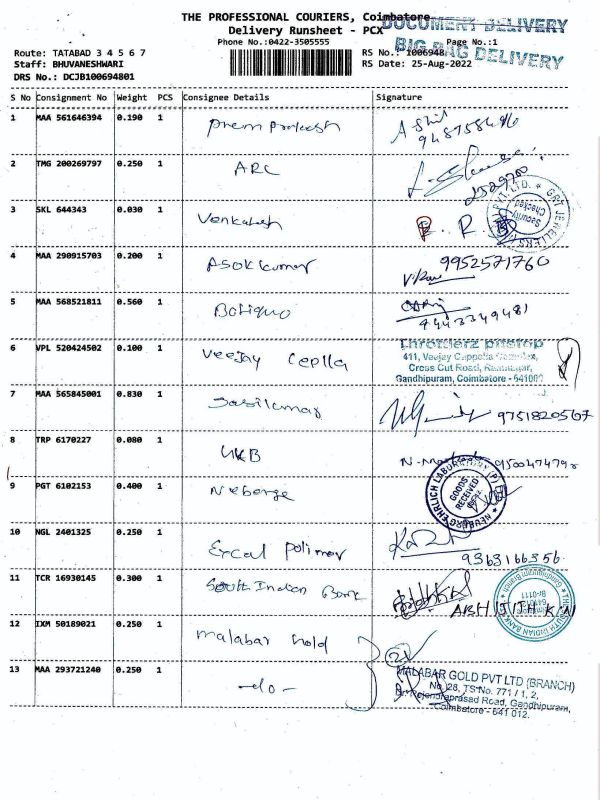 THE PROFESSIONAL COURIERS, Coimbatore
Delivery Runsheet - PCX
Phone No.:0422-3505555
DOCUMENT DELIVERY
BIG BAG DELIVERY
Page No.:1
Route: TATABAD 3 4 5 6 7
RS No.: 1006948
Staff: BHUVANESHWARI
RS Date: 25-Aug-2022
DRS No.: DCJB100694801
S No Consignment No Weight PCS Consignee Details Signature
1 MAA 561646394 0.190 1 Prem Prakash
2 TMG 200269797 0.250 1 ARC
3 SKL 644343 0.030 1 Venkatesh
PVT. LTD. * GRT JEWELLERS
Security Checked
4 MAA 290915703 0.200 1 Asokkumar 9952571760
5 MAA 568521811 0.560 1 4443349481
6 VPL 520424502 0.100 1 Veejay
throttlerz pitstop
411, Veejay Cappella Complex,
Cross Cut Road,
Gandhipuram, Coimbatore - 641000
7 MAA 565845001 0.830 1 Sasikumar 9751820567
8 TRP 6170227 0.080 1
9 PGT 6102153 0.400 1
NEUBERG EHRLICH LABORATORY (P)
GOODS RECEIVED
10 NGL 2401325 0.250 1 Excel Polimer 9363166356
11 TCR 16930145 0.300 1 South Indian Bank ABHIJITH K N
THE SOUTH INDIAN BANK
12 IXM 50189021 0.250 1 Malabar Gold
13 MAA 293721240 0.250 1 -do-
MALABAR GOLD PVT LTD (BRANCH)
No. 26, TS No. 771 / 1, 2,
Dr. Rajendraprasad Road, Gandhipuram,
Coimbatore - 641 012.